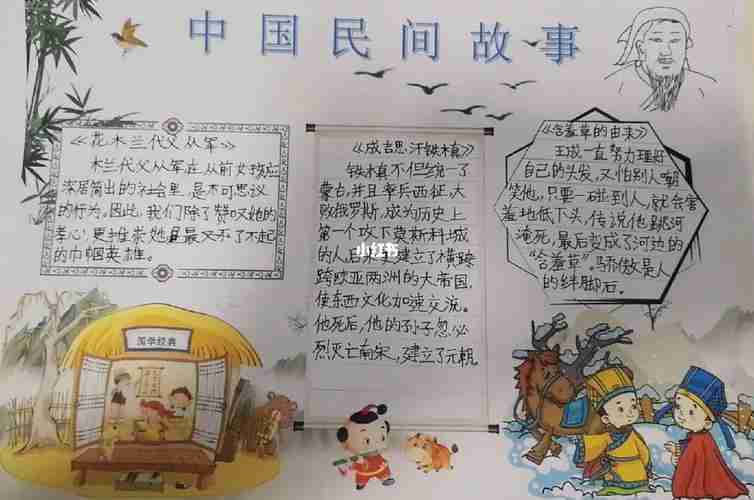 中国民间故事
《花木兰代父从军》
木兰代父从军在从前女孩应
深居简出的社会里,是不可思议
的行为。因此,我们除了赞叹她的
孝心,更推崇她最又不了不起
的巾帼英雄。
《成吉思汗铁木真》
铁木真不但统一了
蒙古,并且率兵西征,大
败俄罗斯,成为历史上
第一个攻下莫斯科城
的人建立了横
跨欧亚两洲的大帝国,
使东西文化加速交流。
他死后,他的孙子忽必
烈灭亡南宋,建立了元朝
小红书
《含羞草的由来》
王成一直努力理好
自己的头发,又怕别人嘲
笑他,只要一碰到人,就会害
羞地低下头,传说他跳河
淹死,最后变成了河边的
“含羞草”。骄傲是人
的绊脚石。
国学经典